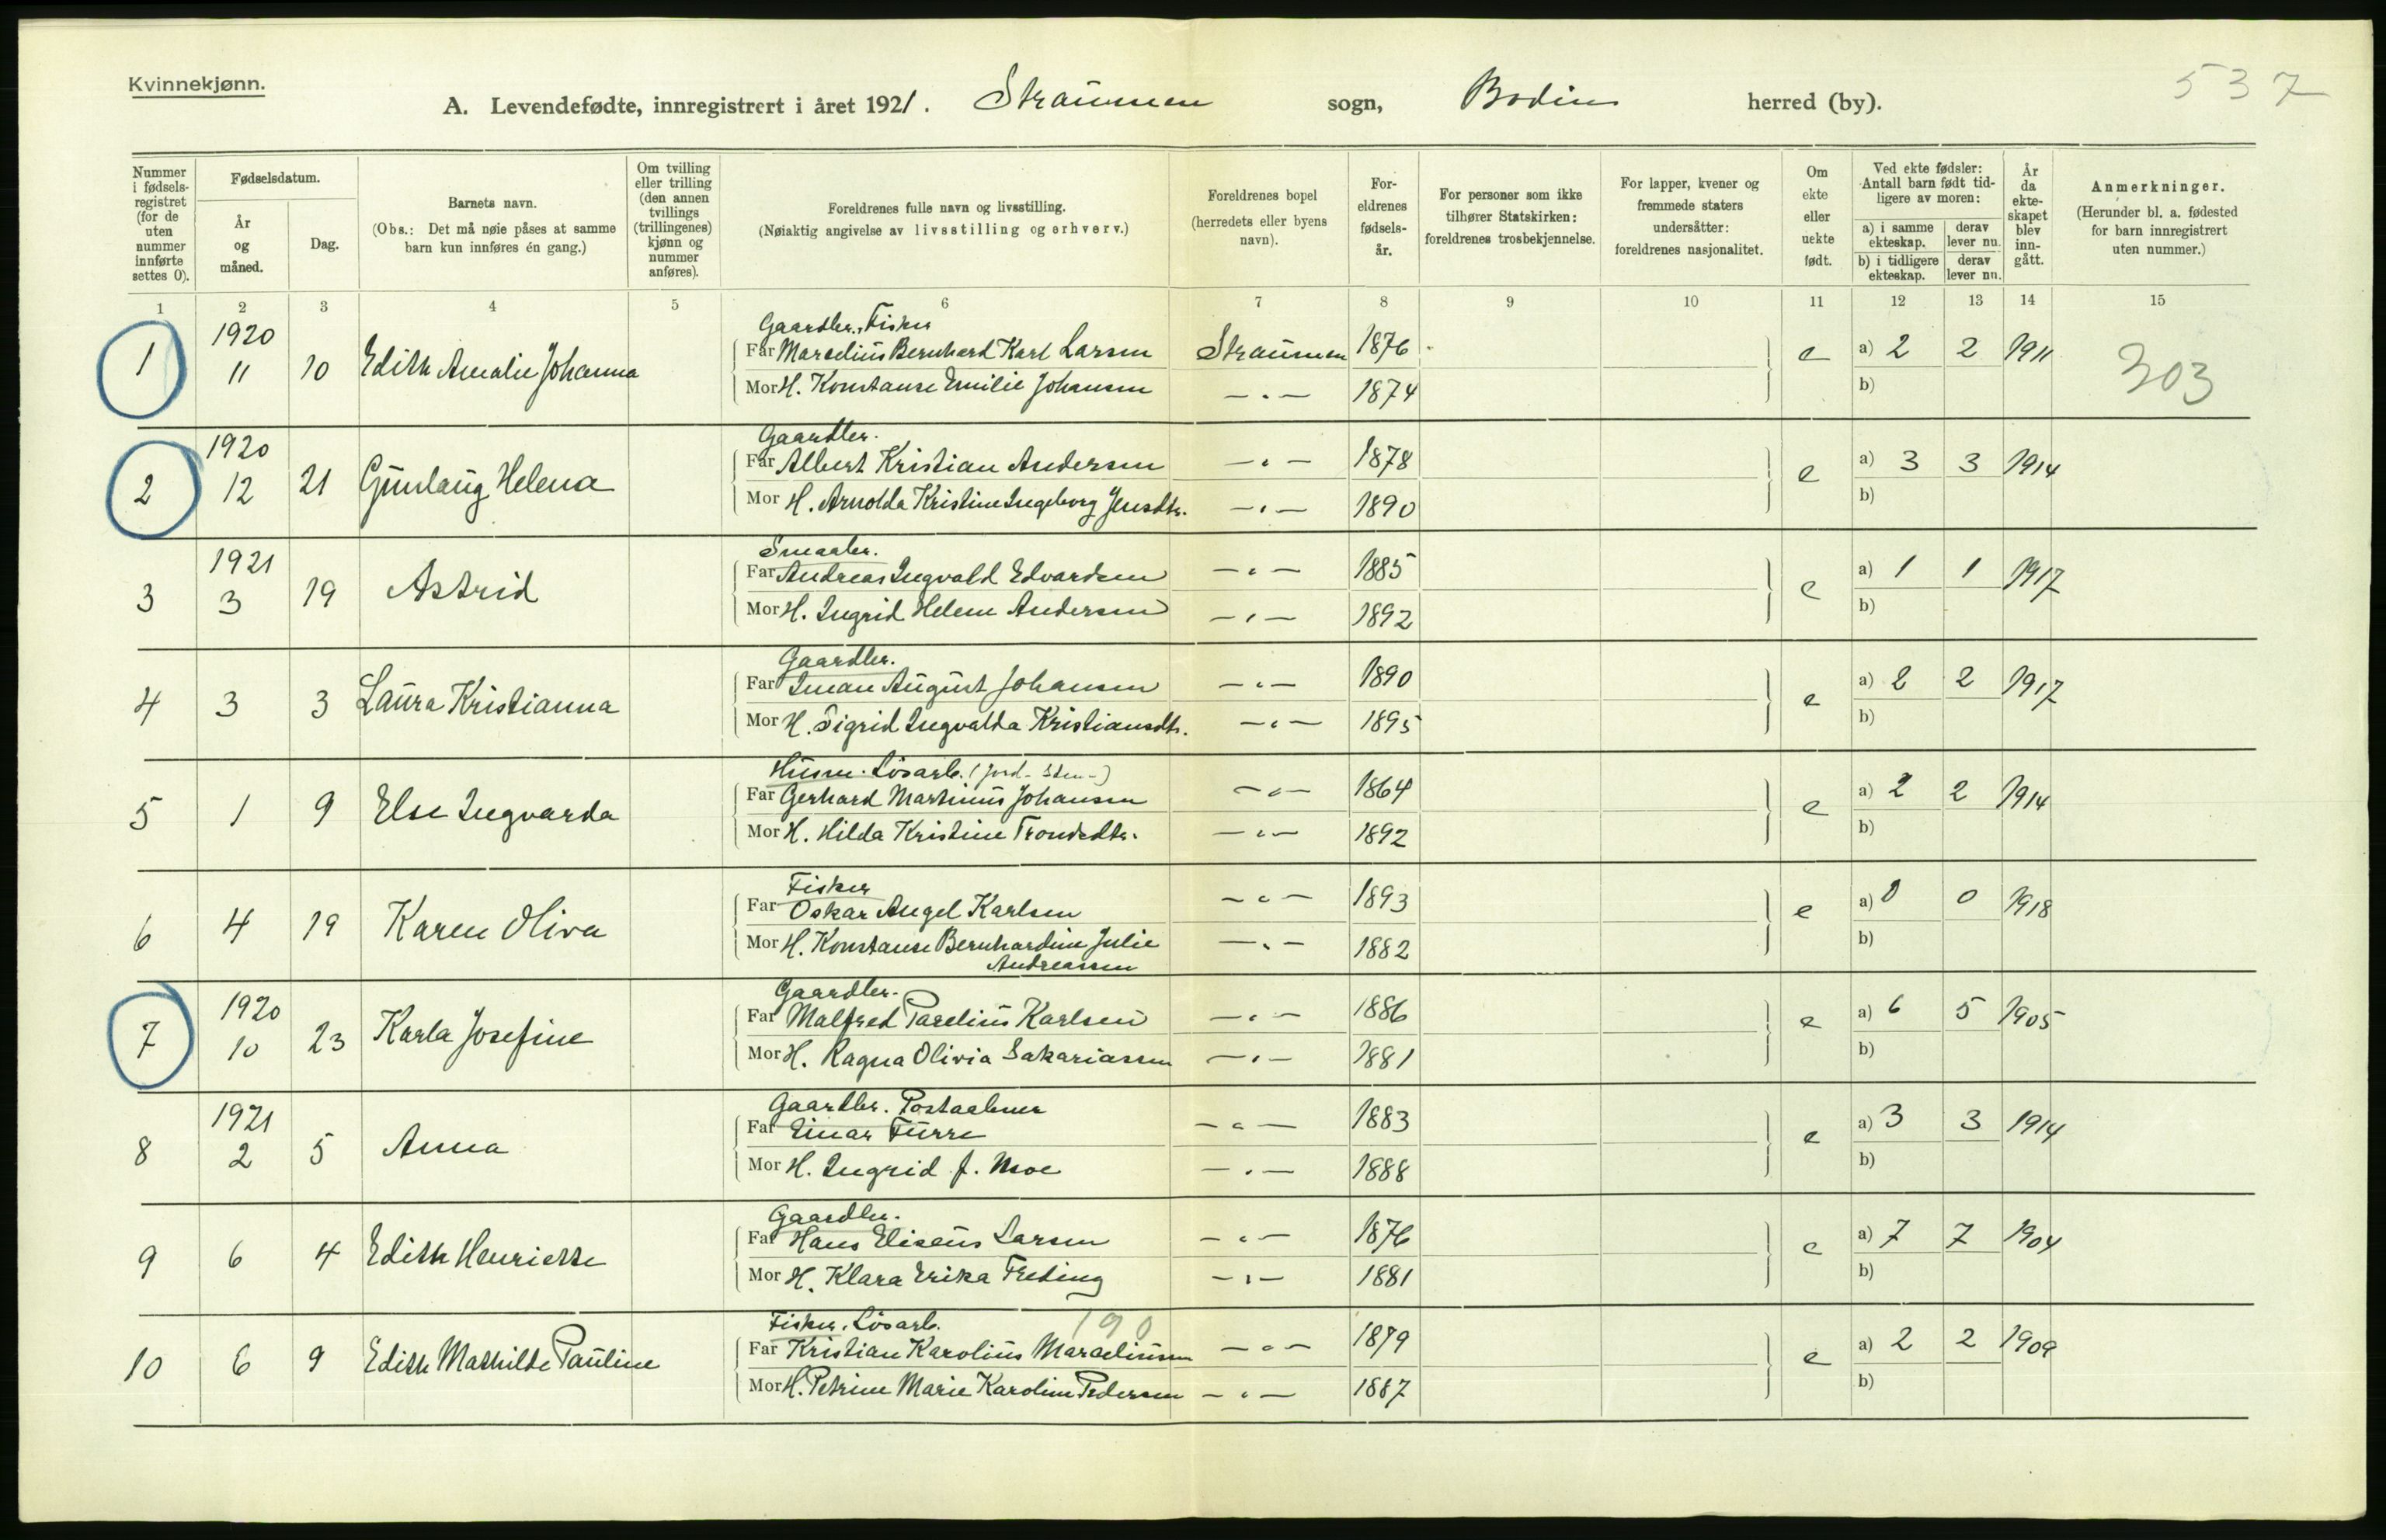 Kvinnekjønn.
537
A. Levendefødte, innregistrert i året 1921. Straumen sogn, Bodin herred (by).
Nummer i fødsels-registret (for de uten nummer innførte settes 0).
Fødselsdatum.
År og måned.
Dag.
Barnets navn.
(Obs.: Det må nøie påses at samme barn kun innføres én gang.)
Om tvilling eller trilling (den annen tvillings (trillingenes) kjønn og nummer anføres).
Foreldrenes fulle navn og livsstilling.
(Nøiaktig angivelse av livsstilling og erhverv.)
Foreldrenes bopel (herredets eller byens navn).
For-eldrenes fødsels-år.
For personer som ikke tilhører Statskirken: foreldrenes trosbekjennelse.
For lapper, kvener og fremmede staters undersåtter: foreldrenes nasjonalitet.
Om ekte eller uekte født.
Ved ekte fødsler: Antall barn født tid-ligere av moren:
a) i samme ekteskap.
derav lever nu.
b) i tidligere ekteskap.
derav lever nu.
År da ekte-skapet blev inn-gått.
Anmerkninger.
(Herunder bl. a. fødested for barn innregistrert uten nummer.)
1 2 3 4 5 6 7 8 9 10 11 12 13 14 15
Gaardbr., Fisker
1 1920 11 10 Edith Amalie Johanna Far Marselius Bernhard Karl Larsen Straumen 1876 e a) 2 2 1911 303
Mor H. Konstanse Emilie Johansen — " — 1874 b)
Gaardbr.
2 1920 12 21 Gunlaug Helena Far Albert Kristian Andersen — " — 1878 e a) 3 3 1914
Mor H. Arnolda Kristine Ingeborg Jensdtr. — " — 1890 b)
Smaabr.
3 1921 3 19 Astrid Far Andreas Ingvald Edvardsen — " — 1885 e a) 1 1 1917
Mor H. Ingrid Helene Andersen — " — 1892 b)
Gaardbr.
4 3 3 Laura Kristianna Far Iman August Johansen — " — 1890 e a) 2 2 1917
Mor H. Sigrid Ingvalda Kristiansdtr. — " — 1895 b)
Husm. Løsarb. (jord- sten-)
5 1 9 Else Ingvarda Far Gerhard Martinus Johansen — " — 1864 e a) 2 2 1914
Mor H. Hilda Kristine Trondsdtr. — " — 1892 b)
Fisker
6 4 19 Karen Oliva Far Oskar Angel Karlsen — " — 1893 e a) 0 0 1918
Mor H. Konstanse Bernhardine Julie — " — 1882 b)
Andreassen
Gaardbr.
7 1920 10 23 Karla Josefine Far Malfred Parelius Karlsen — " — 1886 e a) 6 5 1905
Mor H. Ragna Olivia Sakariassen — " — 1881 b)
Gaardbr. Postaabner
8 1921 2 5 Anna Far Einar Furre — " — 1883 e a) 3 3 1914
Mor H. Ingrid J. Moe — " — 1888 b)
Gaardbr.
9 6 4 Edith Henriette Far Hans Eliseus Larsen — " — 1876 e a) 7 7 1904
Mor H. Klara Erika Freding — " — 1881 b)
Fisker. Løsarb. 190
10 6 9 Edith Mathilde Pauline Far Kristian Karolius Marseliussen — " — 1879 e a) 2 2 1909
Mor H. Petrine Marie Karoline Pedersen — " — 1887 b)